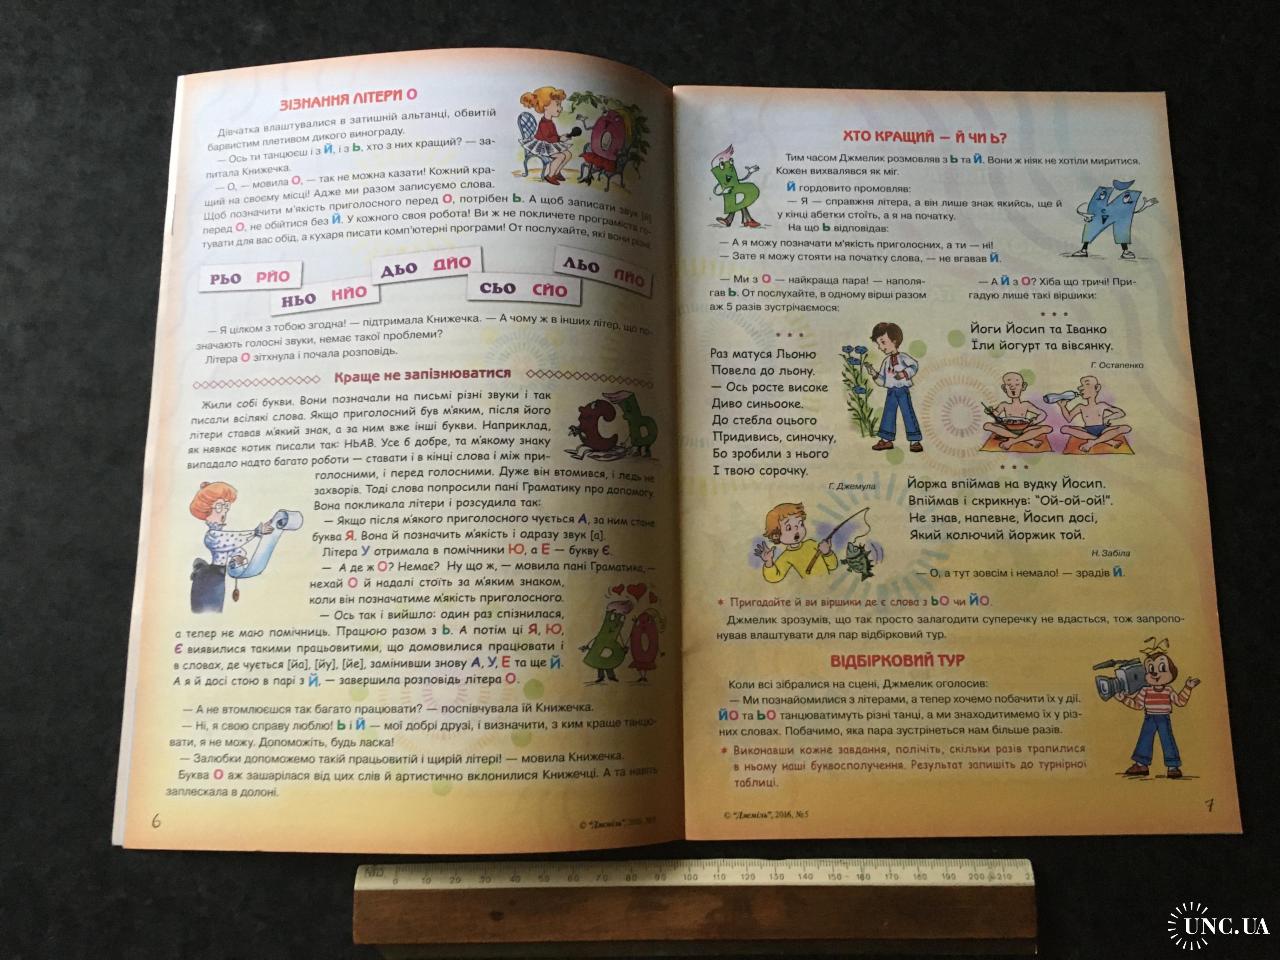 ЗІЗНАННЯ ЛІТЕРИ О
Дівчатка влаштувалися в затишній альтанці, обвитій
барвистим плетивом дикого винограду.
– Ось ти танцюєш і з Й, і з Ь, хто з них кращий? — за-
питала Книжечка.
– О, — мовила О, — так не можна казати! Кожний кра-
щий на своєму місці! Адже ми разом записуємо слова.
Щоб позначити м'якість приголосного перед О, потрібен Ь. А щоб записати звук [й]
перед О, не обійтися без Й. У кожного своя робота! Ви ж не покличете програміста го-
тувати для вас обід, а кухаря писати комп'ютерні програми! От послухайте, які вони різні.
РЬО РЙО
НЬО НЙО
ДЬО ДЙО
СЬО СЙО
ЛЬО ЛЙО
– Я цілком з тобою згодна! — підтримала Книжечка. — А чому ж в інших літер, що по-
значають голосні звуки, немає такої проблеми?
Літера О зітхнула і почала розповідь.
Краще не запізнюватися
Жили собі букви. Вони позначали на письмі різні звуки і так
писали всілякі слова. Якщо приголосний був м'яким, після його
літери ставав м'який знак, а за ним вже інші букви. Наприклад,
як нявкає котик писали так: НЬАВ. Усе б добре, та м'якому знаку
випадало надто багато роботи — ставати і в кінці слова і між при-
голосними, і перед голосними. Дуже він втомився, і ледь не
захворів. Тоді слова попросили пані Граматику про допомогу.
Вона покликала літери і розсудила так:
– Якщо після м'якого приголосного чується А, за ним стане
буква Я. Вона й позначить м'якість і одразу звук [а].
Літера У отримала в помічники Ю, а Е — букву Є.
– А де ж О? Немає? Ну що ж, — мовила пані Граматика, —
нехай О й надалі стоїть за м'яким знаком,
коли він позначатиме м'якість приголосного.
– Ось так і вийшло: один раз спізнилася,
а тепер не маю помічниць. Працюю разом з Ь. А потім ці Я, Ю,
Є виявилися такими працьовитими, що домовилися працювати і
в словах, де чується [йа], [йу], [йе], замінивши знову А, У, Е та ще Й.
А я й досі стою в парі з Й, — завершила розповідь літера О.
– А не втомлюєшся так багато працювати? — поспівчувала їй Книжечка.
– Ні, я свою справу люблю! Ь і Й — мої добрі друзі, і визначити, з ким краще танцю-
вати, я не можу. Допоможіть, будь ласка!
– Залюбки допоможемо такій працьовитій і щирій літері! — мовила Книжечка.
Буква О аж зашарілася від цих слів й артистично вклонилися Книжечці. А та навіть
заплескала в долоні.
6
© "Джміль", 2016, №5
ХТО КРАЩИЙ – Й ЧИ Ь?
Тим часом Джмелик розмовляв з Ь та Й. Вони ж ніяк не хотіли миритися.
Кожен вихвалявся як міг.
Й гордовито промовляв:
– Я — справжня літера, а він лише знак якийсь, ще й
у кінці абетки стоїть, а я на початку.
На що Ь відповідав:
– А я можу позначати м'якість приголосних, а ти — ні!
– Зате я можу стояти на початку слова, — не вгавав Й.
– Ми з О — найкраща пара! — наполя-
гав Ь. От послухайте, в одному вірші разом
аж 5 разів зустрічаємося:
* * *
Раз матуся Льоню
Повела до льону.
– Ось росте високе
Диво синьооке.
До стебла оцього
Придивись, синочку,
Бо зробили з нього
І твою сорочку.
Г. Джемула
– А Й з О? Хіба що тричі! При-
гадую лише такі віршики:
* * *
Йоги Йосип та Іванко
Їли йогурт та вівсянку.
Г. Остапенко
* * *
Йоржа впіймав на вудку Йосип.
Впіймав і скрикнув: "Ой-ой-ой!".
Не знав, напевне, Йосип досі,
Який колючий йоржик той.
Н. Забіла
– О, а тут зовсім і немало! — зрадів Й.
* Пригадайте й ви віршики де є слова з ЬО чи ЙО.
Джмелик зрозумів, що так просто залагодити суперечку не вдасться, тож запропо-
нував влаштувати для пар відбірковий тур.
ВІДБІРКОВИЙ ТУР
Коли всі зібралися на сцені, Джмелик оголосив:
– Ми познайомилися з літерами, а тепер хочемо побачити їх у дії.
ЙО та ЬО танцюватимуть різні танці, а ми знаходитимемо їх у різ-
них словах. Побачимо, яка пара зустрінеться нам більше разів.
* Виконавши кожне завдання, полічіть, скільки разів трапилися
в ньому наші буквосполучення. Результат запишіть до турнірної
таблиці.
© "Джміль", 2016, №5
7
0 10 20 30 40 50 60 70 80 90 100 110 120 130 140 150 160 170 180 190 200 210
UNC.UA